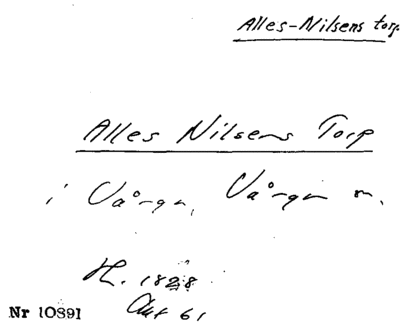 Alles-Nilsens torp
Alles Nilsens Torp
i Vårgn, Vårgn sn.
H. 1828
Akt 61
Nr 10891